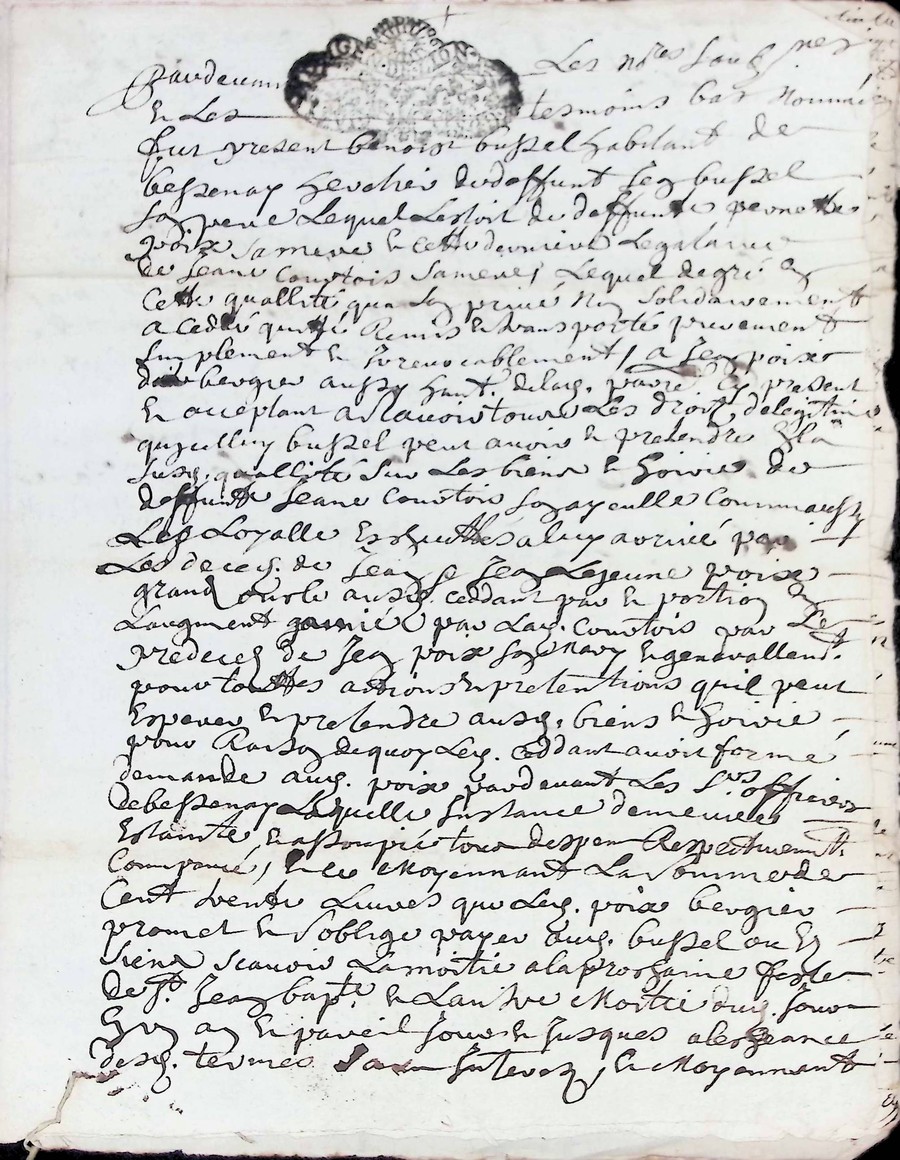 Pardevant Les nres soubsnes
Et Les tesmoins bas nommés
fut present benoist bussel habitant de
bessenay heretier dudeffunt Jean bussel
Son pere Lequel Lestoit de deffunte pernette
poix sa mere et cette derniere Legataire
de Jeane Courtois sa mere, Lequel de gré en
Cette quallité qua son privé nom solidairement
a Ceddé quitté Remis et transporté purement
simplement et Irrevocablement, a Jean poix
dit bergier aussy habt. delad. parre Cy present
Et acceptant a scavoir tous Les droits de legitime
quicelluy bussel peut avoir et pretendre En la
susd. quallité sur Les biens et hoirie de
deffunte Jeane Courtois son ayeulle Comme aussy
Les Loyalle Eschuttes a luy arrivé par
Les deces. de Jean et Jean Lejeune poix
grand oncle ausd. ceddant par et portion en
Laugment gagnié par Lad. Courtois par Le
predeces de Jean poix son mary Et generallemt.
pour touttes actions et pretentions quil peut
Esperer et pretendre ausd. biens et hoirie
pour Raison dequoy Led. ceddant avoit formé
demande aud. poix pardevant Les Srs officiers
de bessenay Laquelle Instance demeure
Estainte et assoupie tous despens Respectivemt.
Compancés, Et ce Moyennant La Somme de
Cent trente Livres que Led. poix bergier
promet et soblige payer aud. bussel ou Es
siens scavoir La moitié a la prochaine feste
de St. Jean bapte. et Lautre Moitié dud. Jour
En un an et pareil Jour et Jusques a lecheance
desd. termes sans Interest, Et Moyennant